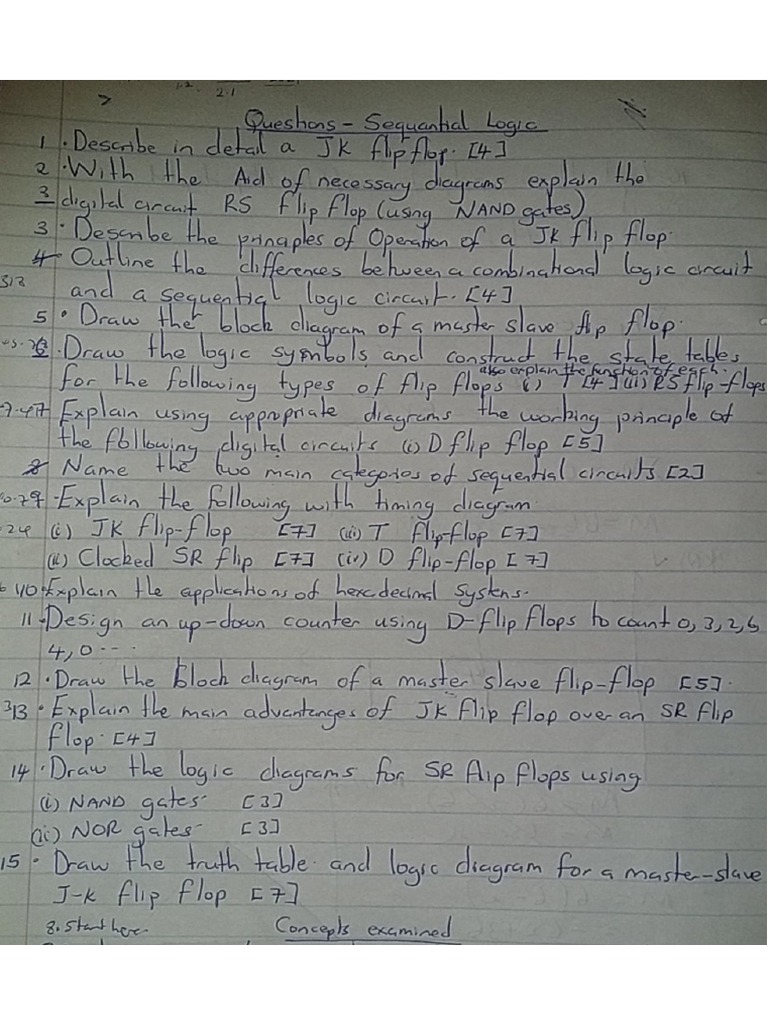 1.2.
2.1
Questions - Sequantial Logic
1. Describe in detail a JK flip flop. [4]
2. With the Aid of necessary diagrams explain the
3 digital circuit RS flip flop (using NAND gates)
3. Describe the principles of Operation of a JK flip flop.
4 Outline the differences between a combinational logic circuit
313 and a sequential logic circuit. [4]
5. Draw the block diagram of a master slave flip flop.
6. Draw the logic symbols and construct the state tables
also explain the function of each.
for the following types of flip flops (i) T [4] (ii) RS flip-flops
7 Explain using appropriate diagrams the working principle of
the following digital circuits (i) D flip flop [5]
8 Name the two main categories of sequential circuits [2]
9. Explain the following with timing diagram
24 (i) JK flip-flop [7] (iii) T flip-flop [7]
(ii) Clocked SR flip [7] (iv) D flip-flop [7]
10. Explain the applications of hexadecimal systems.
11. Design an up-down counter using D-flip flops to count 0, 3, 2, 6
4, 0 ....
12. Draw the block diagram of a master slave flip-flop [5].
13. Explain the main advantages of JK flip flop over an SR flip
flop. [4]
14. Draw the logic diagrams for SR flip flops using
(i) NAND gates [3]
(ii) NOR gates [3]
15. Draw the truth table and logic diagram for a master-slave
J-K flip flop [7]
8. Start here Concepts examined